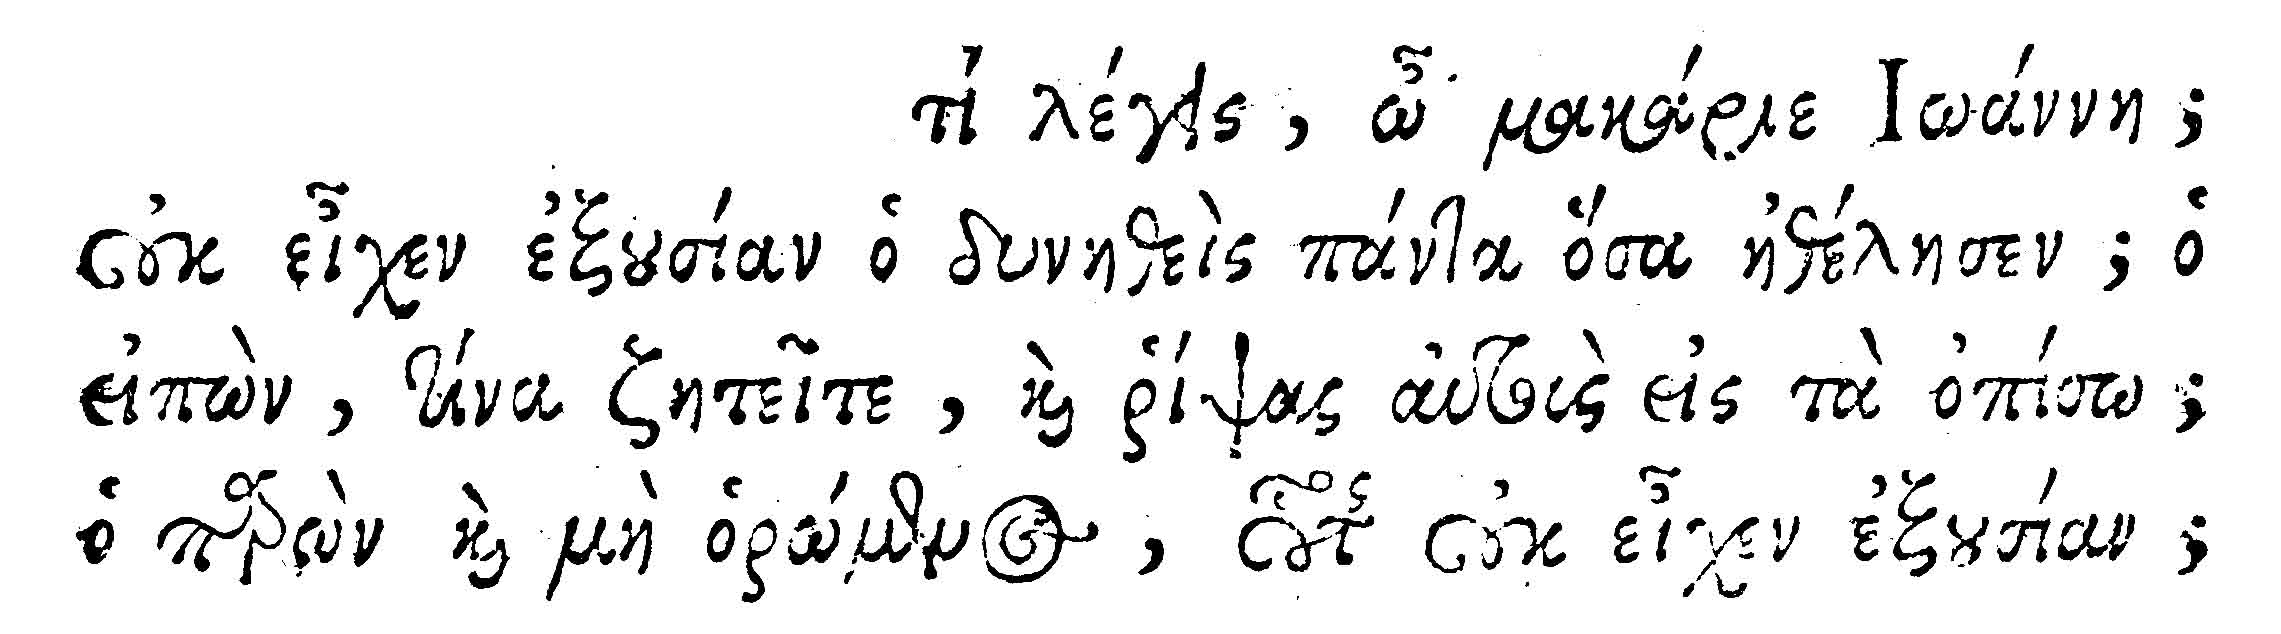 τί λέγεις, ὦ μακάριε Ιωάννη;
οὐκ εἶχεν ἐξουσίαν ὁ δυνηθεὶς πάντα ὅσα ἠθέλησεν; ὁ
εἰπὼν, τίνα ζητεῖτε, καὶ ῥίψας αὐτοὺς εἰς τὰ ὀπίσω;
ὁ παρὼν καὶ μὴ ὁρώμενος, οὗτος οὐκ εἶχεν ἐξουσίαν;